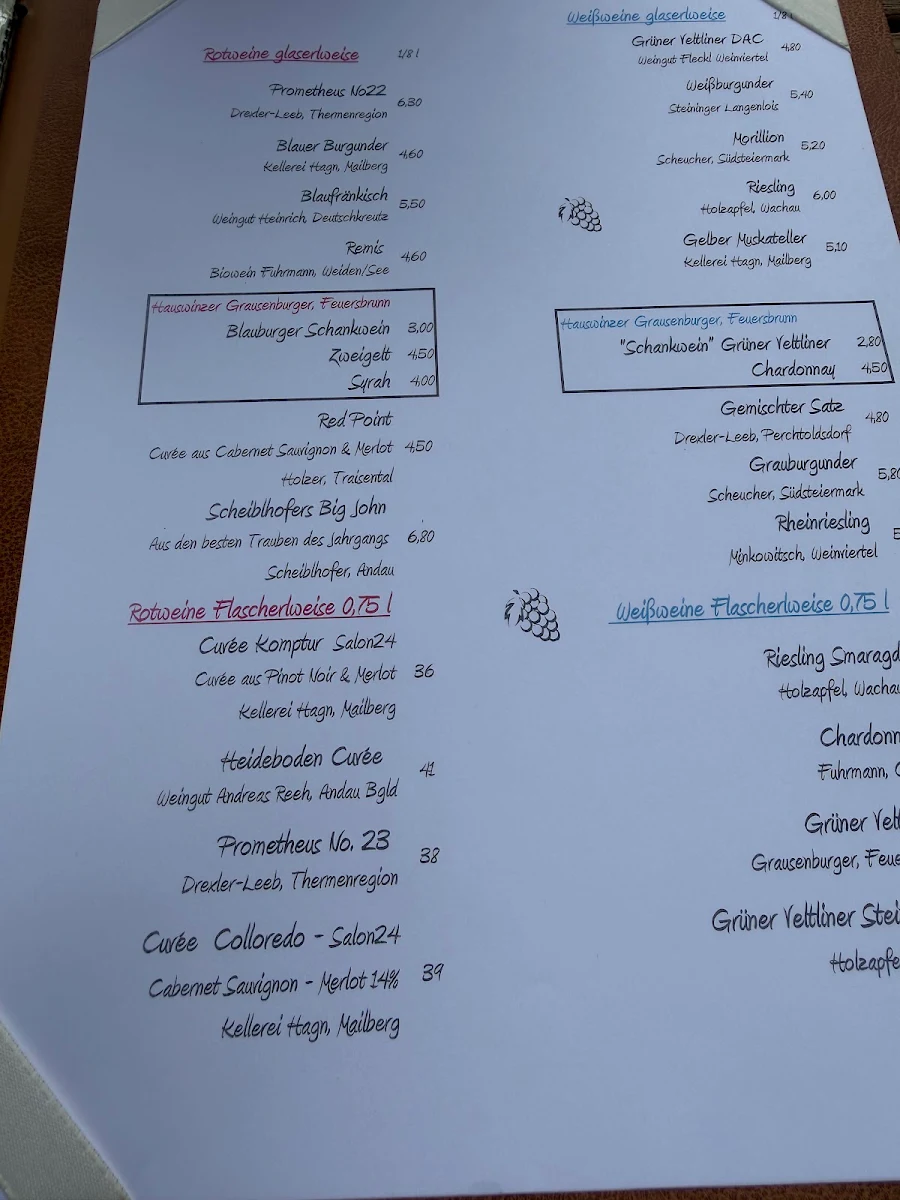 Rotweine glaserlweise 1/8 l
Prometheus No22 6,30
Drexler-Leeb, Thermenregion
Blauer Burgunder 4,60
Kellerei Hagn, Mailberg
Blaufränkisch 5,50
Weingut Heinrich, Deutschkreutz
Remis 4,60
Biowein Fuhrmann, Weiden/See
Hauswinzer Grausenburger, Feuersbrunn
Blauburger Schankwein 3,00
Zweigelt 4,50
Syrah 4,00
Red Point
Cuvée aus Cabernet Sauvignon & Merlot 4,50
Holzer, Traisental
Scheiblhofers Big John
Aus den besten Trauben des Jahrgangs 6,80
Scheiblhofer, Andau
Rotweine Flascherlweise 0,75 l
Cuvée Komptur Salon24
Cuvée aus Pinot Noir & Merlot 36
Kellerei Hagn, Mailberg
Heideboden Cuvée 41
Weingut Andreas Reeh, Andau Bgld
Prometheus No. 23 38
Drexler-Leeb, Thermenregion
Cuvée Colloredo - Salon24
Cabernet Sauvignon - Merlot 14% 39
Kellerei Hagn, Mailberg
Weißweine glaserlweise 1/8 l
Grüner Veltliner DAC 4,80
Weingut Fleckl Weinviertel
Weißburgunder 5,40
Steininger Langenlois
Morillion 5,20
Scheucher, Südsteiermark
Riesling 6,00
Holzapfel, Wachau
Gelber Muskateller 5,10
Kellerei Hagn, Mailberg
Hauswinzer Grausenburger, Feuersbrunn
"Schankwein" Grüner Veltliner 2,80
Chardonnay 4,50
Gemischter Satz 4,80
Drexler-Leeb, Perchtoldsdorf
Grauburgunder 5,80
Scheucher, Südsteiermark
Rheinriesling
Minkowitsch, Weinviertel
Weißweine Flascherlweise 0,75 l
Riesling Smaragd
Holzapfel, Wachau
Chardonn
Fuhrmann,
Grüner Velt
Grausenburger, Feue
Grüner Veltliner Stei
Holzapfe